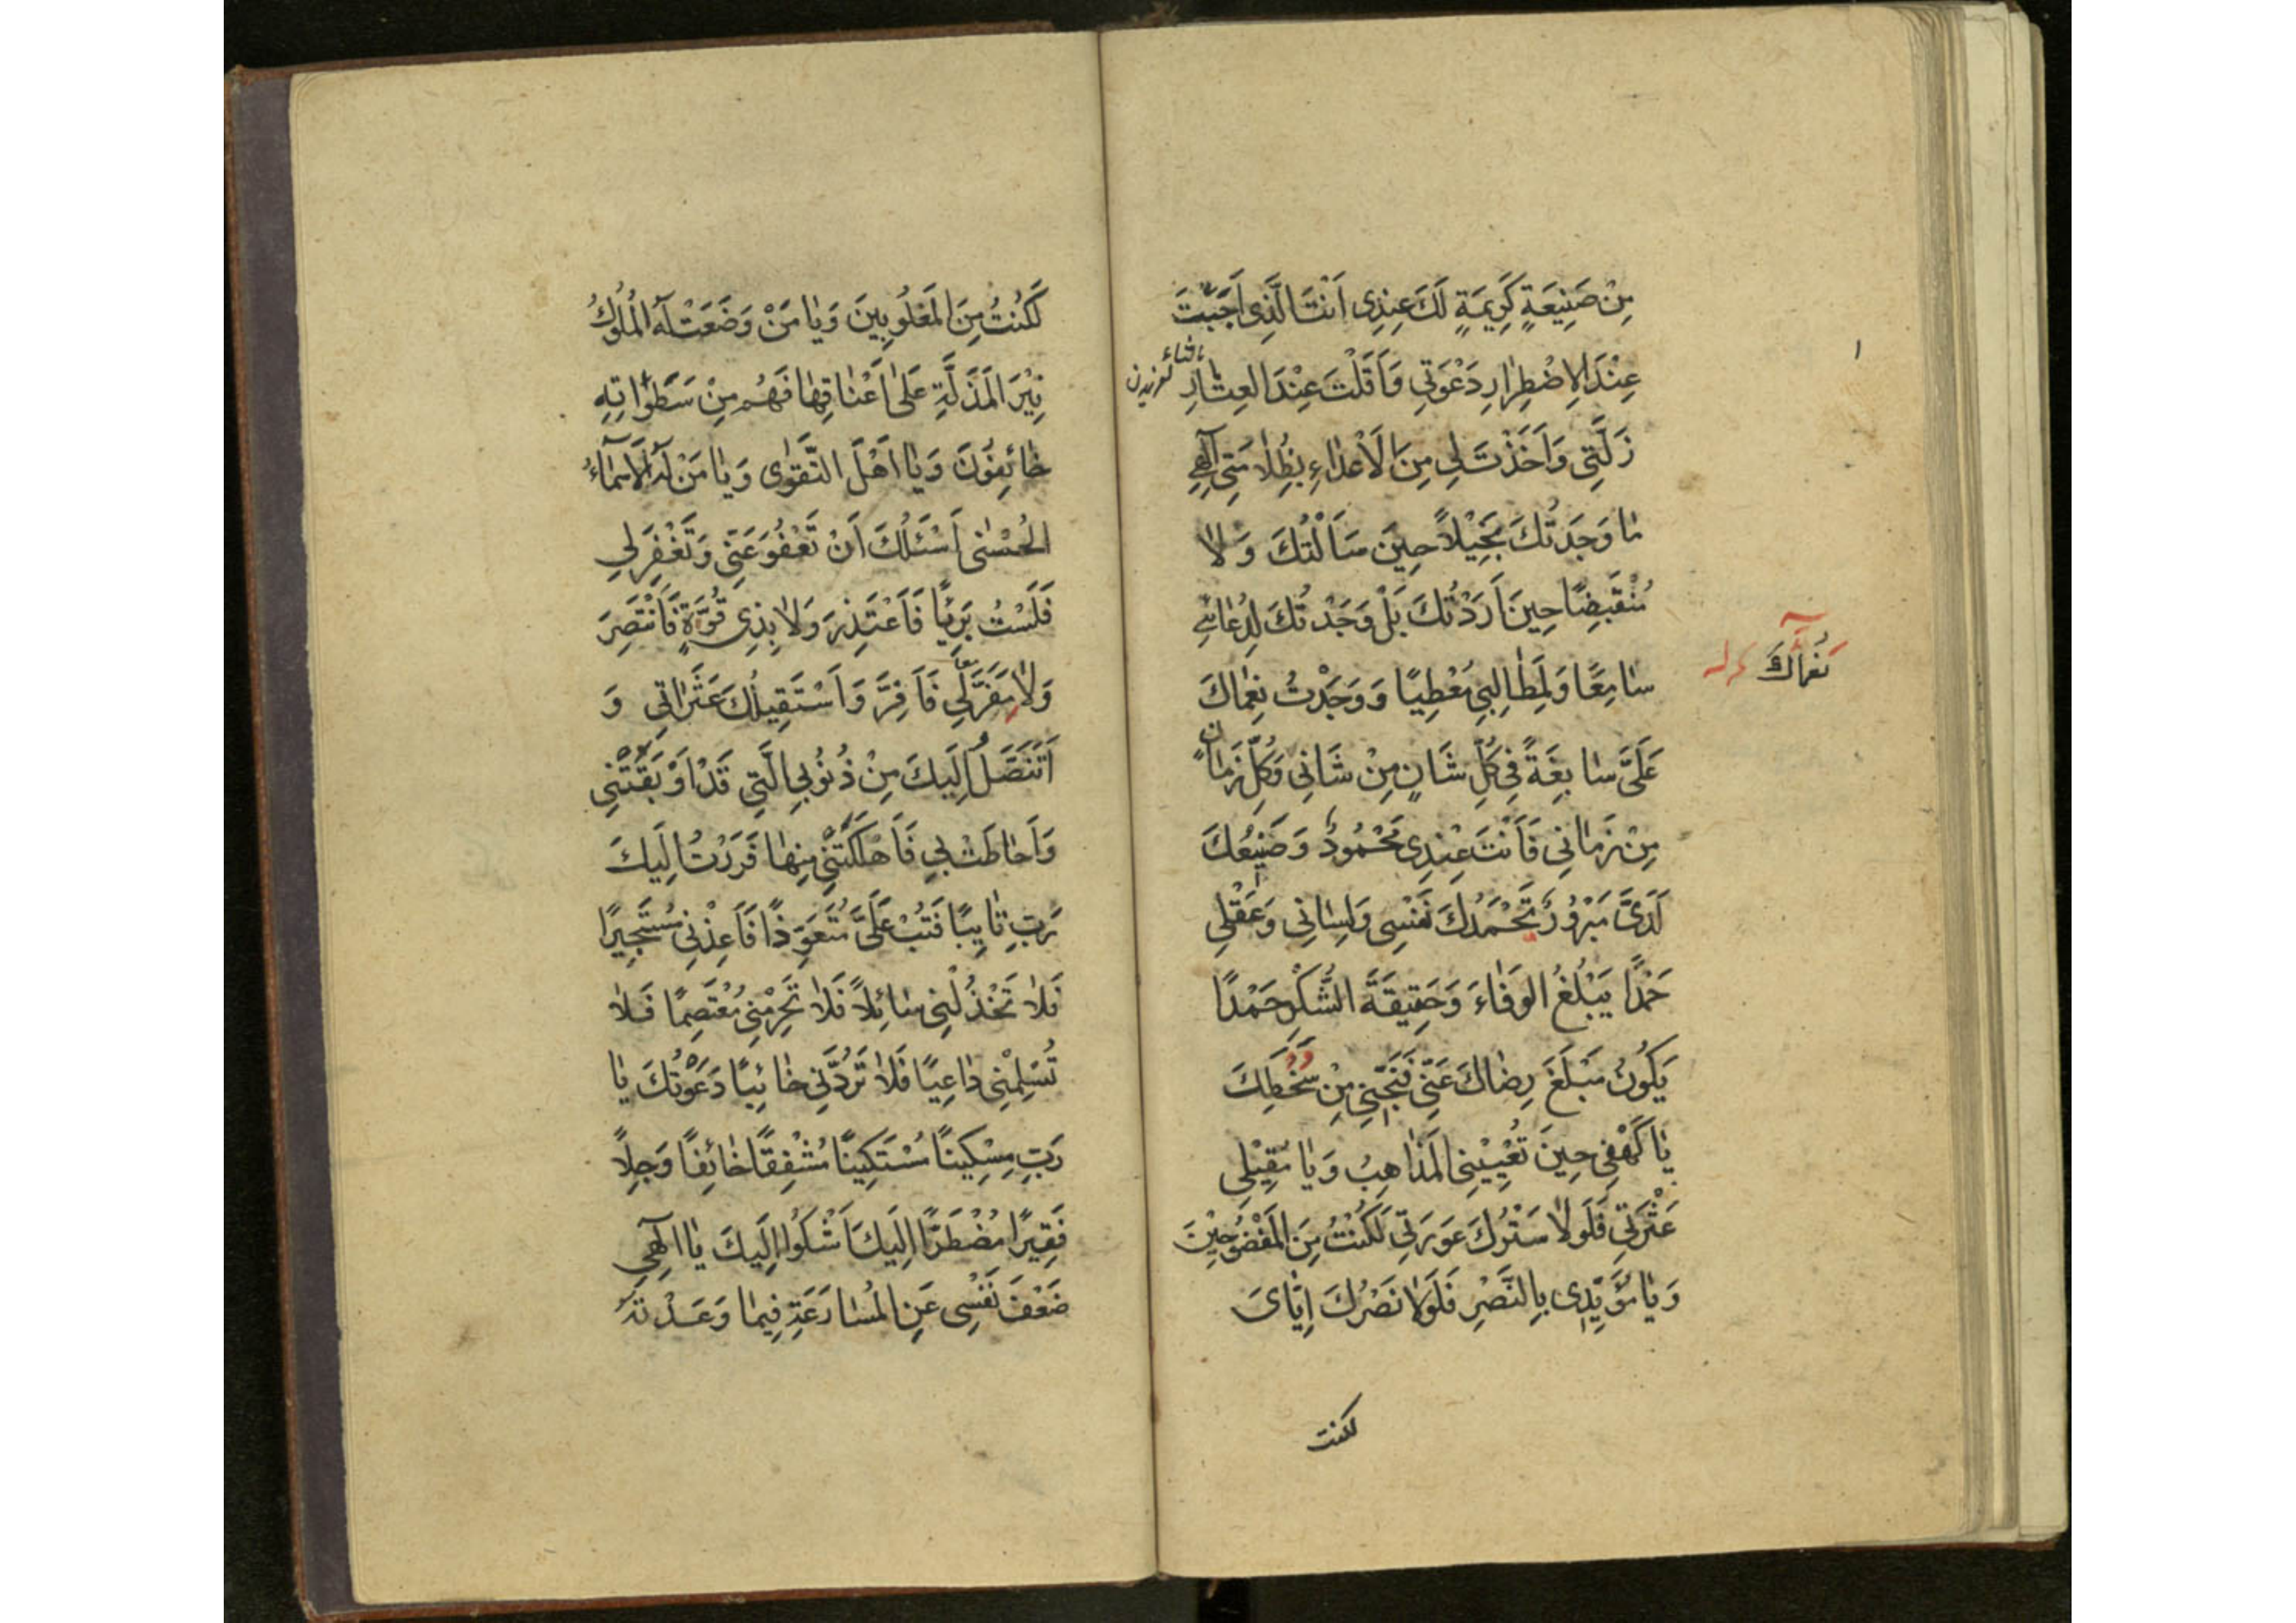 مِنْ صَنِيعَةٍ كَرِيمَةٍ لَكَ عِنْدِى اَنْتَ الَّذِى اَجَبْتَ
عِنْدَ الاِضْطِرٰارِ دَعْوَتِى وَاَقَلْتَ عِنْدَ العِثٰارِ
زَلَّتِى وَاَخَذْتَ لِى مِنَ الَاعْدٰاءِ بِظُلاٰمَتِى اِلٰهِى
مٰا وَجَدْتُكَ بَخِيْلاً حِينَ سَاَلْتُكَ وَ لاٰ
مُنْقَبِضًا حِينَ اَرَدْتُكَ بَلْ وَجَدْتُكَ لِدُعٰائِى
سٰامِعًا وَلِمَطٰالِبِى مُعْطِيًا وَ وَجَدْتُ نِعْمٰاكَ
نُعْمٰاكَ
عَلَىَّ سٰابِغَةً فِى كُلِّ شَانٍ مِنْ شَانِى وَكُلِّ زَمٰانٍ
مِنْ زَمٰانِى فَاَنْتَ عِنْدِى مَحْمُودٌ وَ صَنِيعُكَ
لَدَىَّ مَبْرُورٌ تَحْمَدُكَ نَفْسِى وَلِسٰانِى وَعَقْلِى
حَمْدًا يَبْلُغُ الوَفٰاءَ وَحَقِيقَةَ الشُّكْرِ حَمْدًا
يَكُونُ مَبْلَغَ رِضٰاكَ عَنِّى فَنَجِّنِى مِنْ سَخَطِكَ
يٰا كَهْفِى حِينَ تُعْيِيْنِى المَذٰاهِبُ وَيٰا مُقِيْلِى
عَثْرَتِى فَلَوْلاٰ سَتْرُكَ عَوْرَتِى لَكُنْتُ مِنَ المَفْضُوحِيْنَ
وَيٰا مُؤَيِّدِى بِالنَّصْرِ فَلَوْلاٰ نَصْرُكَ اِيّٰاىَ
لكنت
لَكُنْتُ مِنَ المَغْلُوبِينَ وَيٰا مَنْ وَضَعَتْ لَهُ المُلُوكُ
نِيْرَ المَذَلَّةِ عَلىٰ اَعْنٰاقِهٰا فَهُمْ مِنْ سَطَوٰاتِهِ
خٰائِفُونَ وَ يٰا اَهْلَ التَّقْوٰى وَيٰا مَنْ لَهُ الاَسْمٰآءُ
الحُسْنٰى اَسْئَلُكَ اَنْ تَعْفُوَ عَنِّى وَتَغْفِرَ لِى
فَلَسْتُ بَرِيْئًا فَاَعْتَذِرَ وَلاٰ بِذِى قُوَّةٍ فَاَنْتَصِرَ
وَلاٰ مَفَرَّ لِى فَاَفِرَّ وَاَسْتَقِيلُكَ عَثَرٰاتِى وَ
اَتَنَصَّلُ اِلَيكَ مِنْ ذُنُوبِى الَّتِى قَدْ اَوْبَقَتْنِى
وَاَحٰاطَتْ بِى فَاَهْلَكَتْنِى مِنهٰا فَرَرْتُ اِلَيكَ
رَبِّ تٰايِبًا فَتُبْ عَلَىَّ مُتَعَوِّذًا فَاَعِذْنِى مُسْتَجِيرًا
فَلاٰ تَخْذُلْنِى سٰائِلاً فَلاٰ تَحْرِمْنِى مُعْتَصِمًا فَلاٰ
تُسْلِمْنِى دٰاعِيًا فَلاٰ تَرُدَّنِى خٰائِبًا دَعَوْتُكَ يٰا
رَبِّ مِسْكِينًا مُسْتَكِينًا مُشْفِقًا خٰائِفًا وَجِلاً
فَقِيرًا مُضْطَرًّا اِلَيكَ اَشْكُوا اِلَيكَ يٰا اِلٰهِى
ضَعْفَ نَفْسِى عَنِ المُسٰارَعَةِ فِيمٰا وَعَدْتَهُ